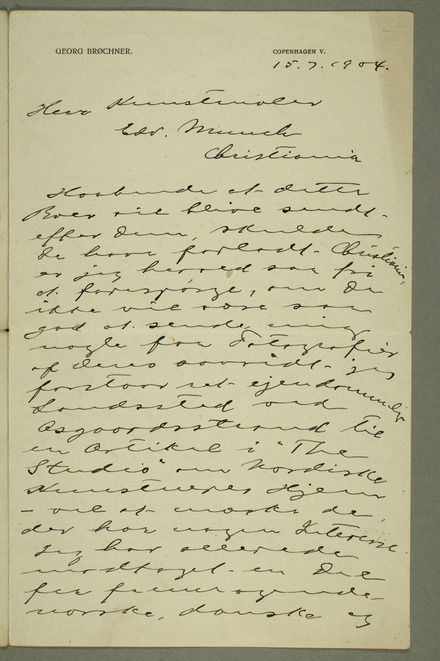 GEORG BRØCHNER.
COPENHAGEN V.
15.7.1904.
Herr Kunstmaler
Edv. Munch
Christiania
Haabende at dette
Brev vil blive sendt
efter Dem, skulde
De have forladt Christiania,
er jeg herved saa fri
at forespørge, om De
ikke vil være saa
god at sende mig
nogle faa Fotografier
af Deres saavidt jeg
forstaar ret ejendommelige
Landssted ved
Aasgaardsstrand til
en Artikel i "The
Studio" om Nordiske
Kunstneres Hjem
- vil at mærke de,
der har nogen Interesse.
Jeg har allerede
modtaget en Del
fra fremragende
norske, danske og